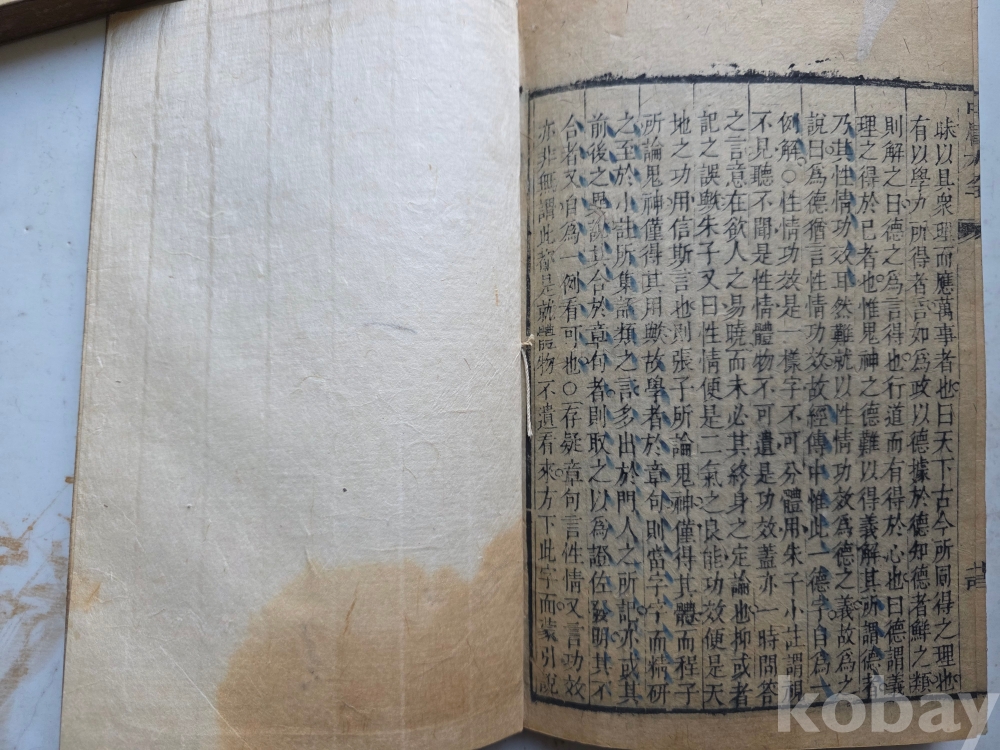 昧以具衆理而應萬事者也曰天下古今所同得之理也
有以學力所得者言如爲政以德據於德知德者鮮之類
則解之曰德之爲言得也行道而有得於心也曰德謂義
理之得於己者也惟鬼神之德難以得義解其所謂德者
乃其性情功效耳然難就以性情功效爲德之義故爲之
說曰爲德猶言性情功效故經傳中惟此一德字自爲一
例解○性情功效是一樣字不可分體用朱子小註謂視
不見聽不聞是性情體物不可遺是功效蓋亦一時問答
之言意在欲人之易曉而未必其終身之定論也抑或者
記之誤歟朱子又曰性情便是二氣之良能功效便是天
地之功用信斯言也則張子所論鬼神僅得其體而程子
所論鬼神僅得其用歟故學者於章句則當字字而精研
之至於小註所集語類之言多出於門人之所記亦或其
前後之異說其合於章句者則取之以爲證佐發明其不
合者又自爲一例看可也○存疑章句言性情又言功效
亦非無謂此都是就體物不遺看來方下此字而蒙引說
kobay